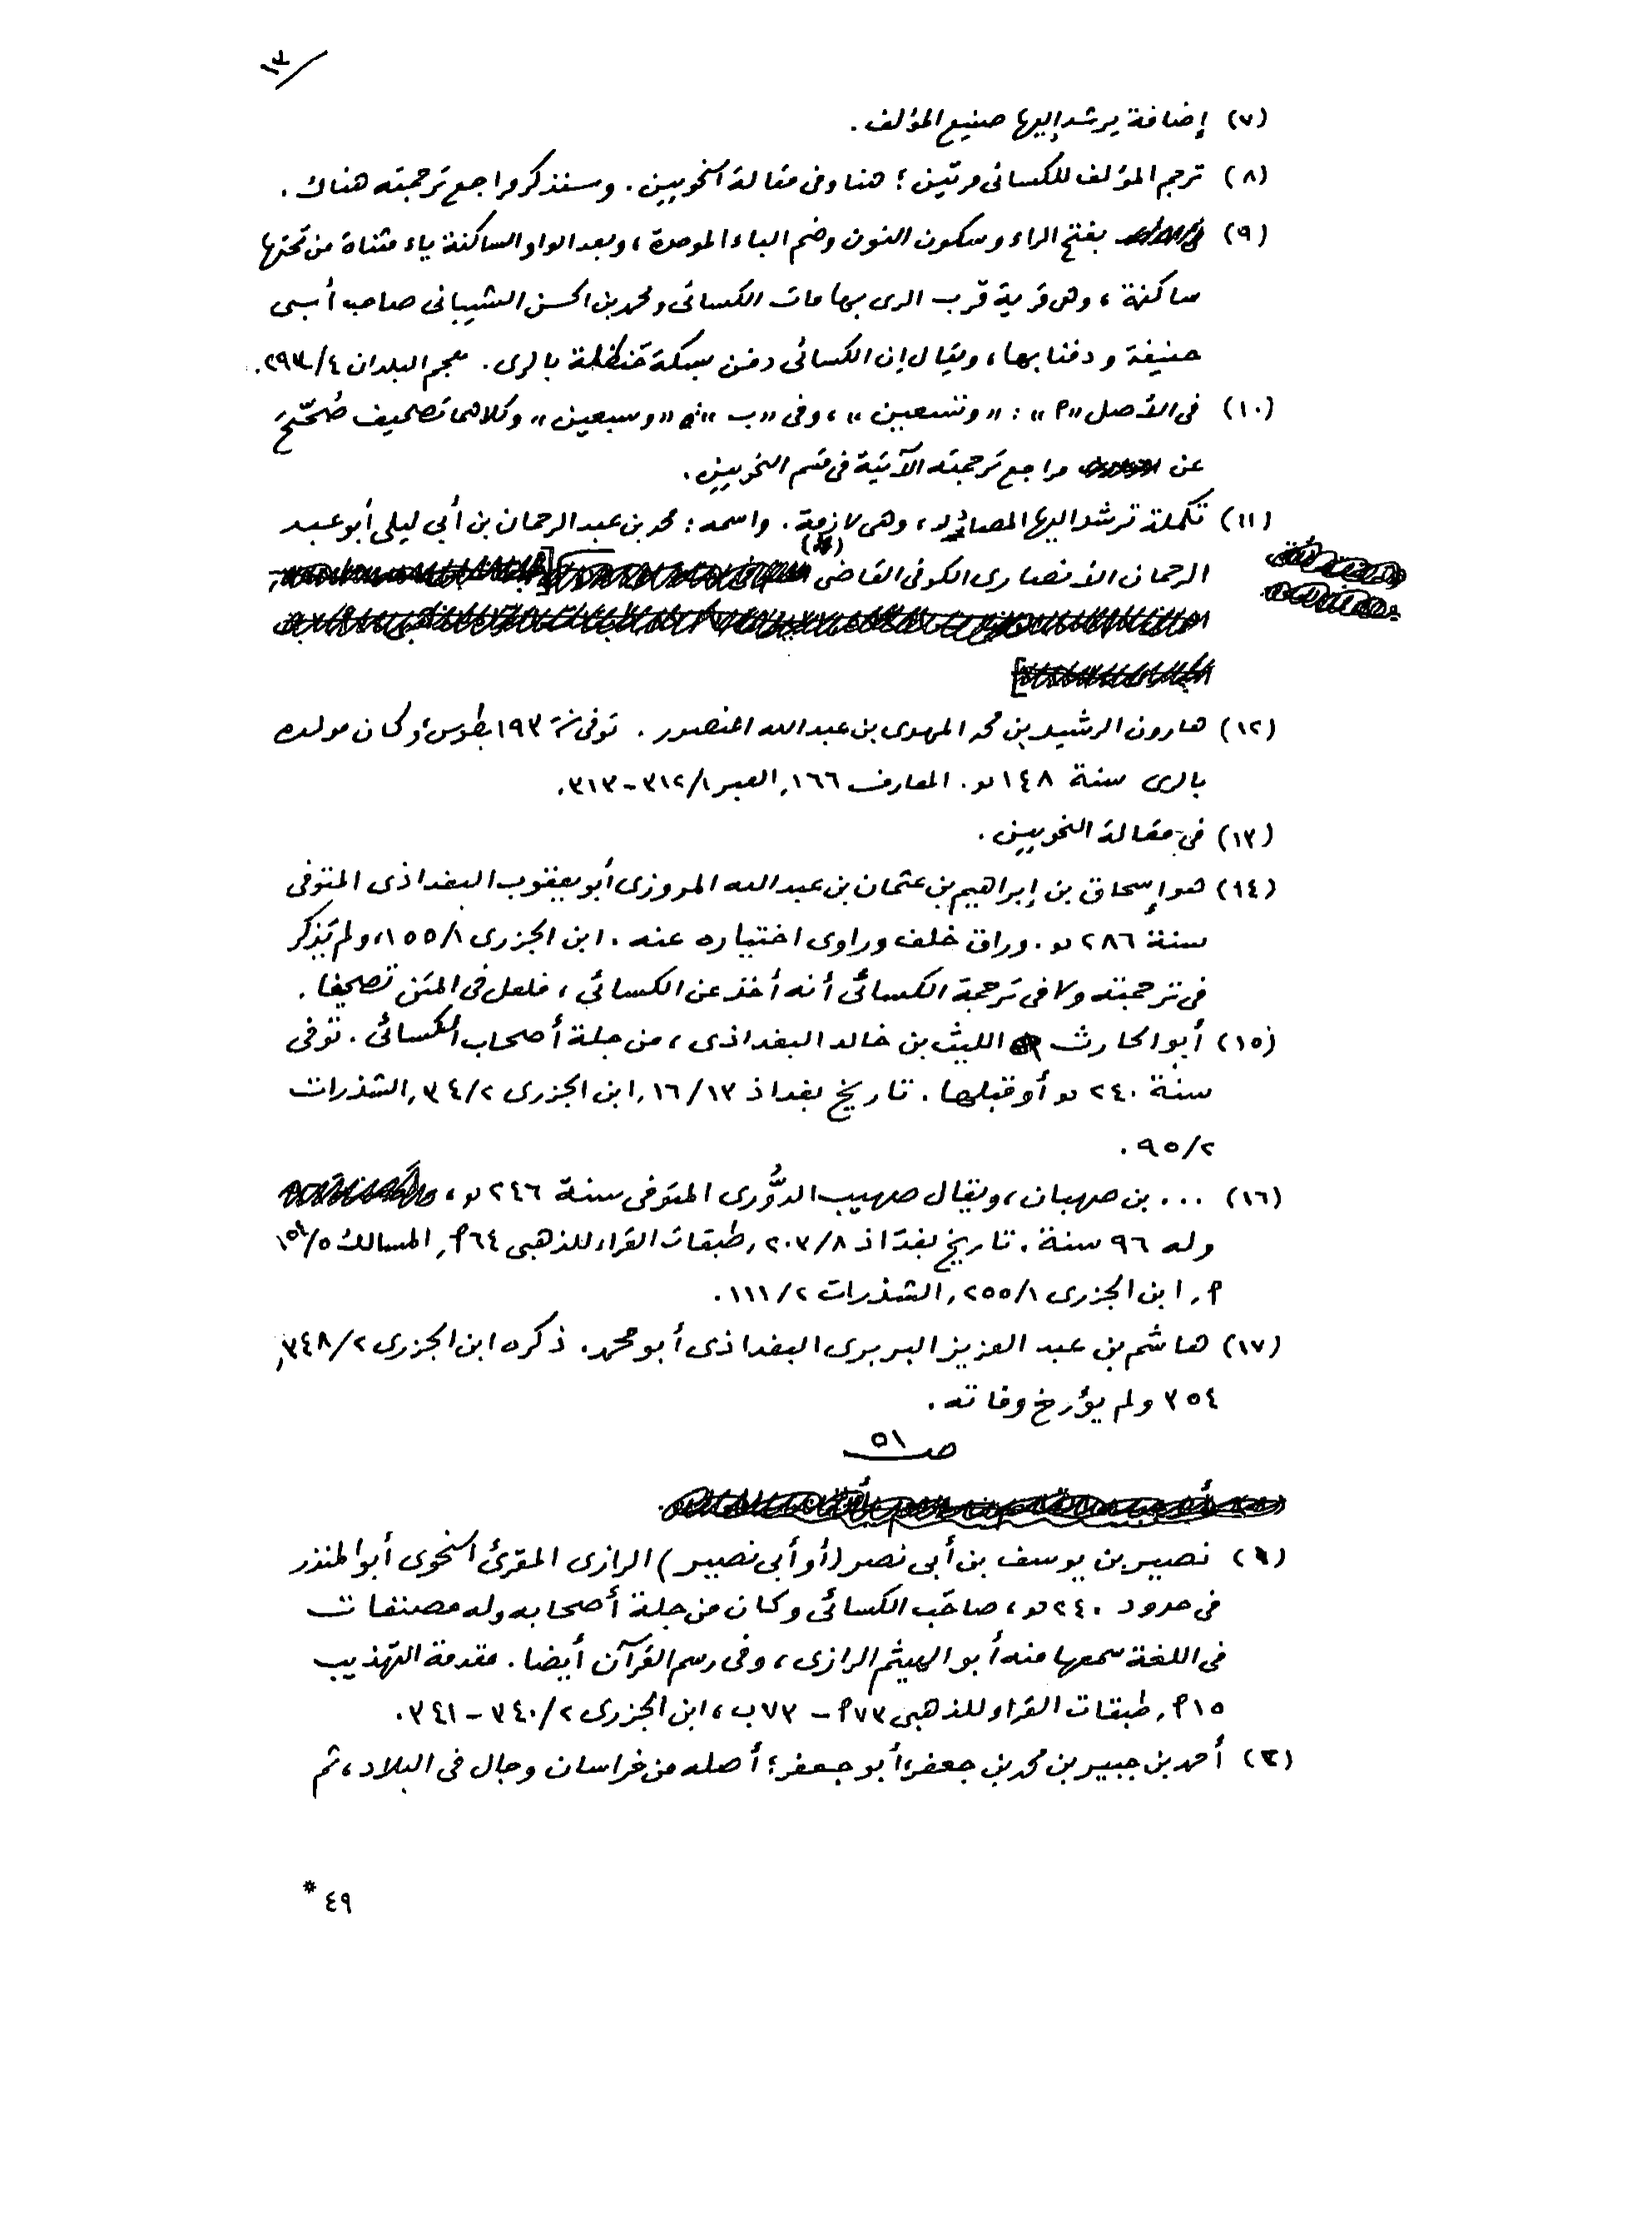 ١٣
(٧) إضافة يرشد إليها صنيع المؤلف .
(٨) ترجم المؤلف للكسائى مرتين ؛ هنا وفى مقالة النحويين . وسنذكر مراجع ترجمته هناك .
(٩) بفتح الراء وسكون النون وضم الباء الموحدة ، وبعد الواو الساكنة ياء مثناة من تحتها
ساكنة ، وهى قرية قرب الرى بها مات الكسائى ومحمد بن الحسن الشيبانى صاحب أبى
حنيفة ودفنا بها ، ويقال إن الكسائى دفن بسكة حنظلة بالرى . معجم البلدان ٤/٢٩٣ .
(١٠) فى الأصل «م» : «وتسعين» ، وفى «ب» «وسبعين» وكلاهما تصحيف صُحّح
عن مراجع ترجمته الآتية فى قسم النحويين .
(١١) تكملة ترشد اليها المصادر ، وهى لازمة . واسمه : محمد بن عبد الرحمان بن أبي ليلى أبو عبد
الرحمان الأنصارى الكوفى القاضى
(١٢) هارون الرشيد بن محمد المهدى بن عبد الله المنصور . توفى سنة ١٩٣ بطوس ، وكان مولده
بالرى سنة ١٤٨ هـ . المعارف ١٦٦ , العبر ١/٣١٢ - ٣١٣ .
(١٣) فى مقالة النحويين .
(١٤) هو إسحاق بن إبراهيم بن عثمان بن عبد الله المروزى أبو يعقوب البغداذى المتوفى
سنة ٢٨٦ هـ . وراق خلف وراوى اختياره عنه . ابن الجزرى ١/١٥٥ ، ولم يذكر
فى ترجمته ولا فى ترجمة الكسائى أنه أخذ عن الكسائي ، فلعل فى المتن تصحيفا .
(١٥) أبو الحارث الليث بن خالد البغداذى ، من جلة أصحاب الكسائى . توفى
سنة ٢٤٠ هـ أو قبلها . تاريخ بغداذ ١٣/١٦ , ابن الجزرى ٢/٣٤ , الشذرات
٢/٩٥ .
(١٦) ... بن صهبان ، ويقال صهيب الدُّورى المتوفى سنة ٢٤٦ هـ ،
وله ٩٦ سنة . تاريخ بغداذ ٨/٢٠٣ , طبقات القراء للذهبى ٦٤م , المسالك ٥/١٥٤
م , ابن الجزرى ١/٢٥٥ , الشذرات ٢/١١١ .
(١٧) هاشم بن عبد العزيز البربرى البغداذى أبو محمد . ذكره ابن الجزرى ٢/٣٤٨ ,
٣٥٤ ولم يؤرخ وفاته .
صـ ٥١
(١) نصير بن يوسف بن أبى نصر (أو أبى نصير) الرازى المقرئ النحوى أبو المنذر
فى حدود ٢٤٠ هـ ، صاحب الكسائى وكان من جلة أصحابه وله مصنفات
فى اللغة سمعها منه أبو الهيثم الرازى ، وفى رسم القرآن أيضا . مقدمة التهذيب
١٥م , طبقات القراء للذهبى ٧٣م - ٧٣ب ، ابن الجزرى ٢/٣٤٠ - ٣٤١ .
(٢) أحمد بن جبير بن محمد بن جعفر ، أبو جعفر ؛ أصله من خراسان وجال فى البلاد ، ثم
٤٩ *